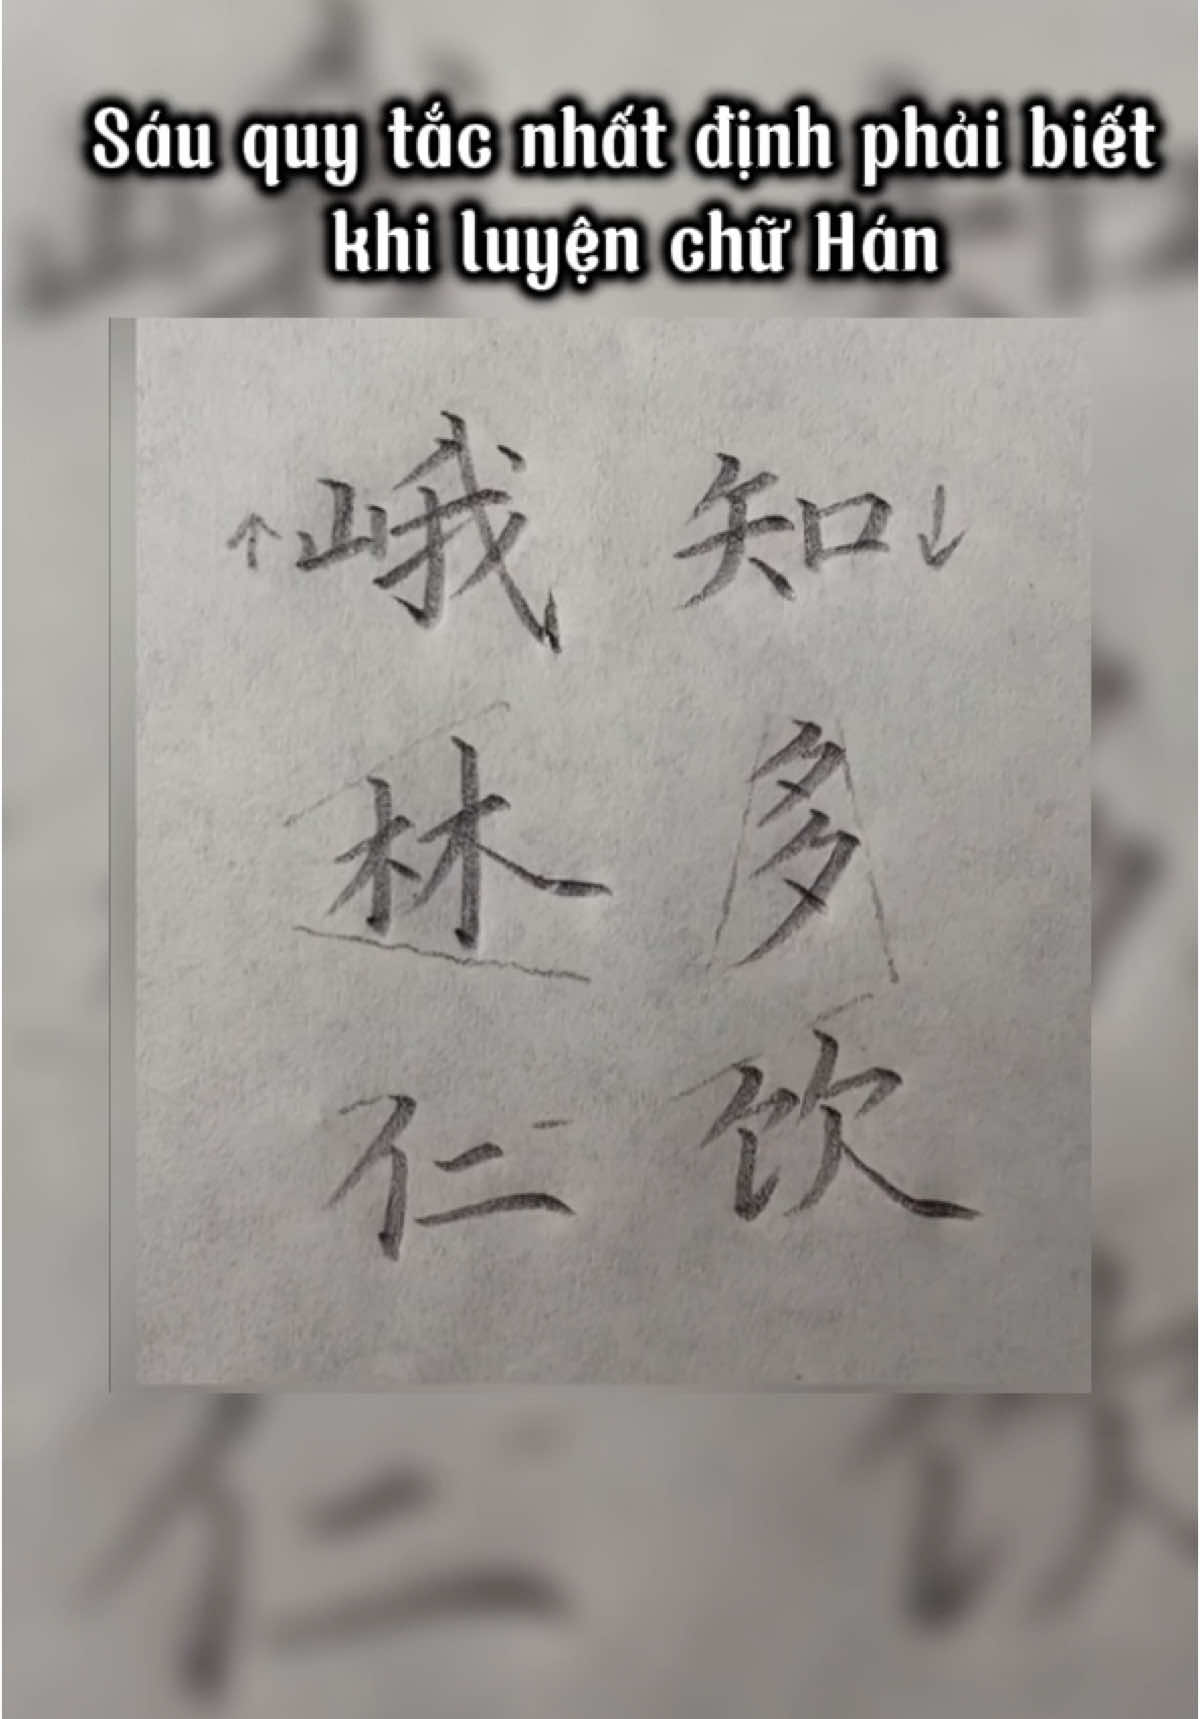 Sáu quy tắc nhất định phải biết
khi luyện chữ Hán
↑峨 知↓
林 多
仁 饮